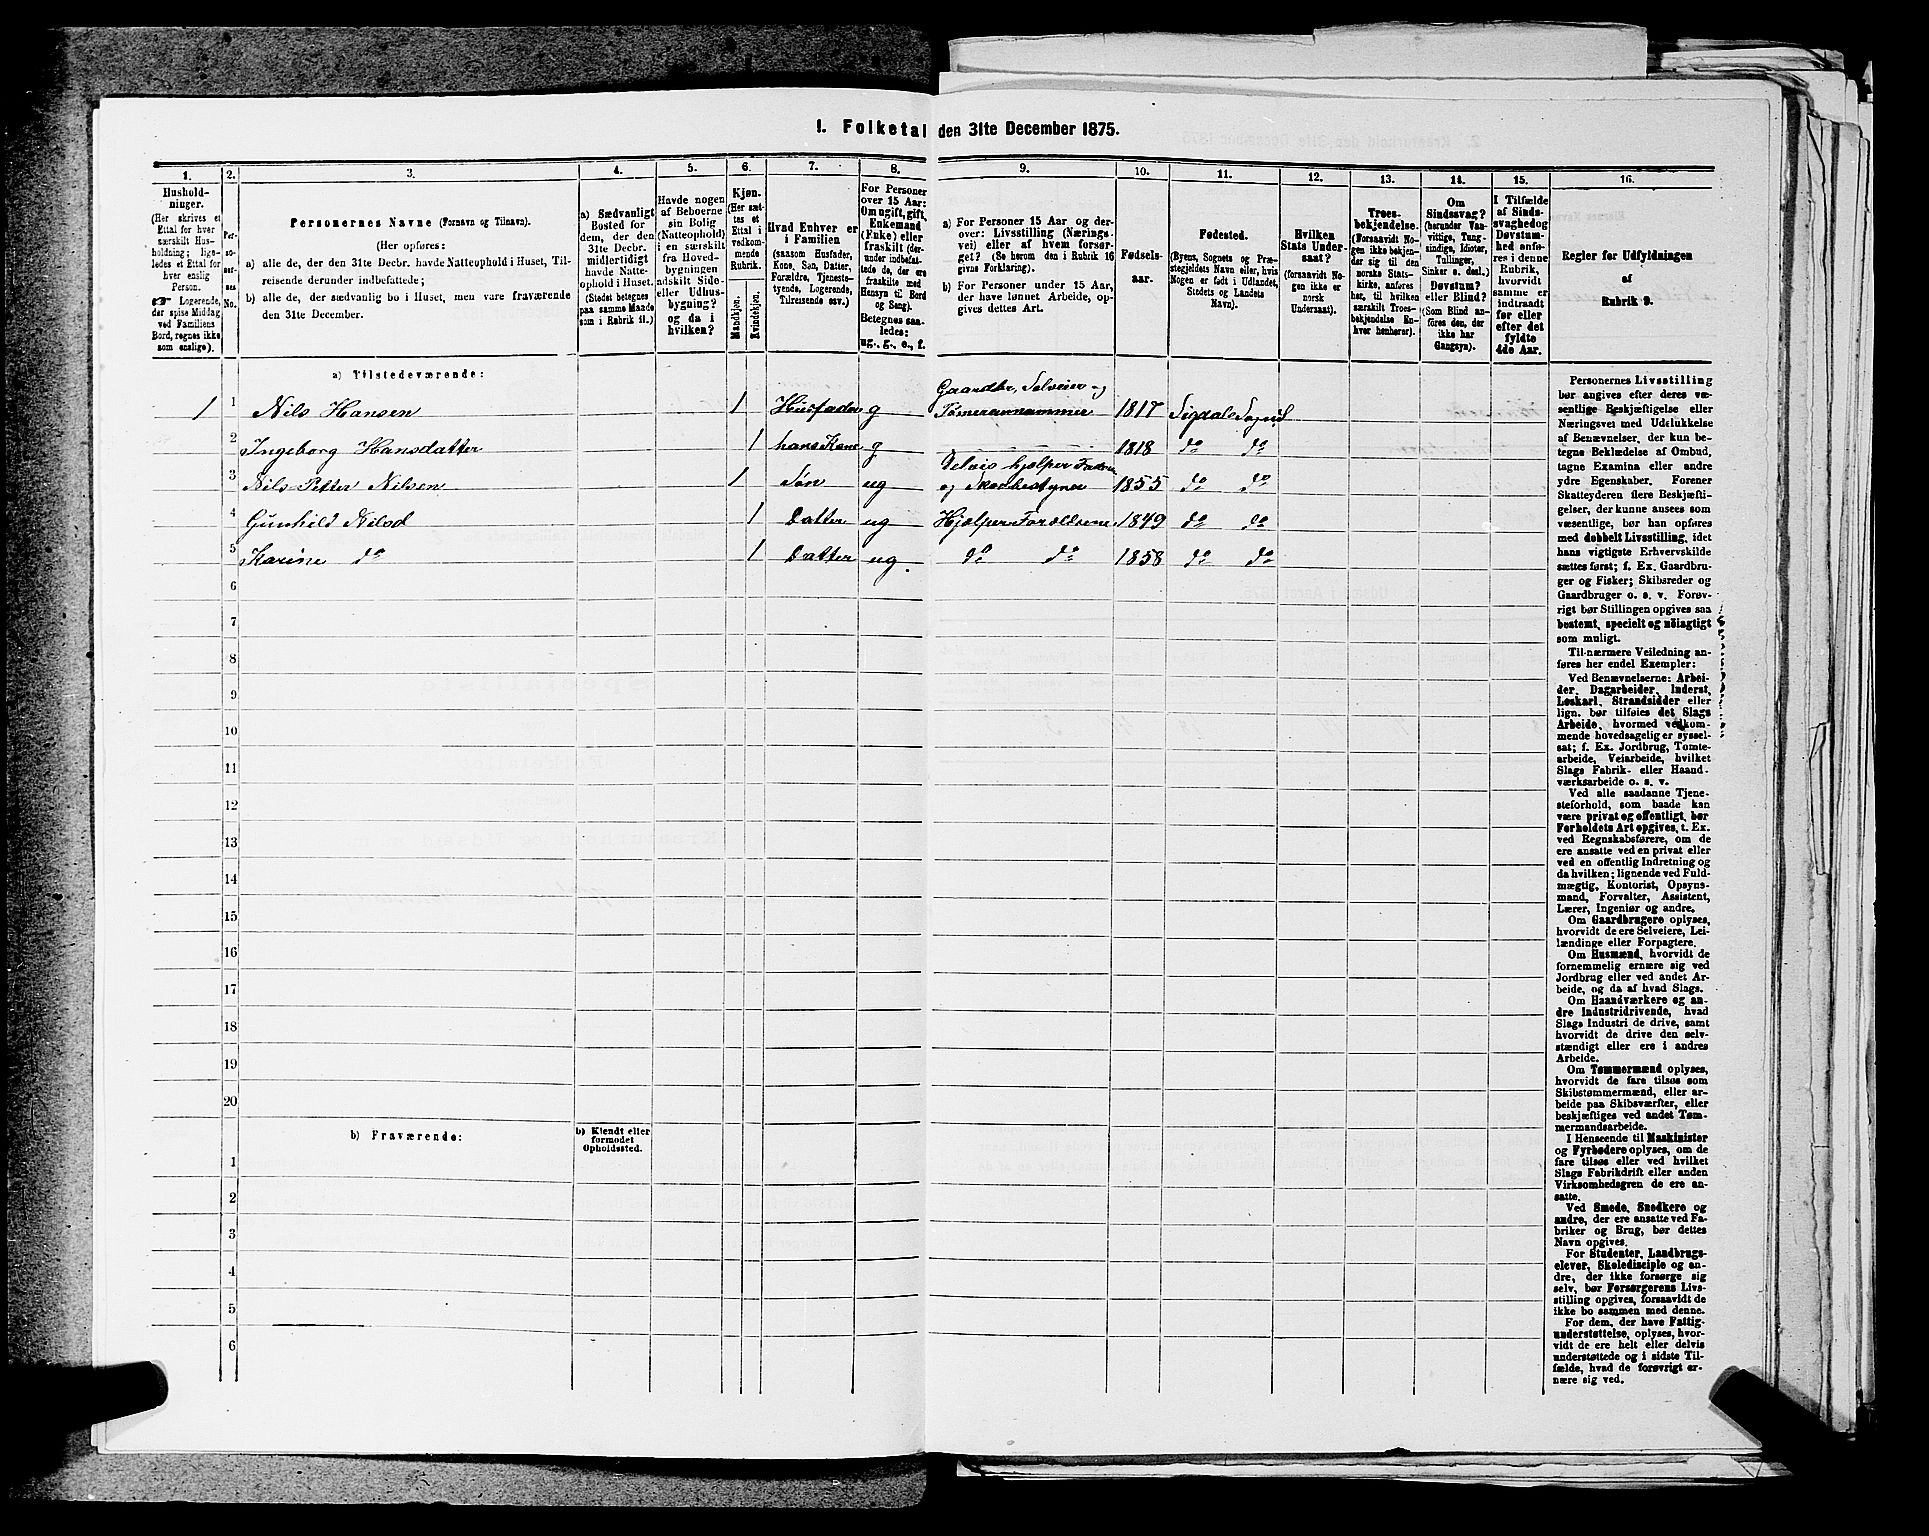 1. Folketal den 31te December 1875.
1.
2.
3.
4.
5.
6.
7.
8.
9.
10.
11.
12.
13.
14.
15.
16.
Hushold-
ninger.
(Her skrives et
Ettal for hver
særskilt Hus-
holdning; lige-
ledes et Ettal for
hver enslig
Person.
☞ Logerende,
der spise Middag
ved Familiens
Bord, regnes ikke
som enslige).
Per-
so-
ner-
nes
No.
Personernes Navne (Fornavn og Tilnavn).
(Her opføres:
a) alle de, der den 31te Decbr. havde Natteophold i Huset, Til-
reisende derunder indbefattede;
b) alle de, der sædvanlig bo i Huset, men vare fraværende
den 31te December.
a) Sædvanligt
Bosted for
dem, der den
31te Decbr.
midlertidigt
havde Natte-
ophold i Huset.
(Stedet betegnes
paa samme Maade
som i Rubrik 11.)
Havde nogen
af Beboerne
sin Bolig
(Natteophold)
i en særskilt
fra Hoved-
bygningen
adskilt Side-
eller Udhus-
bygning?
og da i
hvilken?
Kjøn.
(Her sæt-
tes et
Ettal i
vedkom-
mende
Rubrik.
Mandkjøn.
Kvindekjøn.
Hvad Enhver er
i Familien
(saasom Husfader,
Kone, Søn, Datter,
Forældre, Tjeneste-
tyende, Logerende,
Tilreisende osv.)
For Personer
over 15 Aar:
Om ugift, gift,
Enkemand
(Enke) eller
fraskilt (der-
under indbefat-
tede de, der ere
fraskilte med
Hensyn til Bord
og Seng).
Betegnes saa-
ledes:
ug., g., e., f.
a) For Personer 15 Aar og der-
over: Livsstilling (Nærings-
vei) eller af hvem forsør-
get? (Se herom i Rubrik 16
givne Forklaring).
b) For Personer under 15 Aar,
der have lønnet Arbeide, op-
gives dettes Art.
Fødsels-
aar.
Fødested.
(Byens, Sognets og Præ-
stegjeldets Navn eller, hvis
Nogen er født i Udlandet,
Stedets og Landets
Navn).
Hvilken
Stats Under-
saat?
(forsaavidt No-
gen ikke er
norsk
Undersaat).
Troes-
bekjendelse.
(Forsaavidt No-
gen ikke bekjen-
der sig til den
norske Stats-
kirke, anføres
her, til hvilken
særskilt Troes-
bekjendelse En-
hver henhører).
Om
Sindssvag?
(herunder Van-
vittige, Tung-
sindige, Idioter,
Tullinger,
Sinker o. desl.)
Døvstum?
eller Blind?
(Som Blind an-
føres den, der
ikke har
Gangsyn).
I Tilfælde
af Sinds-
svaghed og
Døvstum-
hed anfø-
res i denne
Rubrik,
hvorvidt
samme er
indtraadt
før eller
efter det
fyldte
4de Aar.
Regler for Udfyldningen
af
Rubrik 9.
a) Tilstedeværende:
1 1 Nils Hansen 1 Husfader g Gaardbr, Selveier og
1817 Sigdals Sogn
2 Ingeborg Hansdatter 1 hans Kone g 1818 do do
3 Nils Petter Nilsen 1 Søn ug Delvis hjælper Faderen
og 1855 do do
4 Gunhild Nilsd 1 Datter ug Hjælper Forældrene 1849 do do
5 Karine do 1 Datter ug do do 1858 do do
6
7
8
9
10
11
12
13
14
15
16
17
18
19
20
b) Fraværende:
b) Kjendt eller
formodet
Opholdssted.
1
2
3
4
5
6
Personernes Livsstilling
bør angives efter deres væ-
sentlige Beskjæftigelse eller
Næringsvei med Udelukkelse
af Benævnelser, der kun be-
tegne Beklædelse af Ombud,
tagne Examina eller andre
ydre Egenskaber. Forener
Skatteyderen flere Beskjæfti-
gelser, der kunne ansees som
væsentlige, bør han opføres
med dobbelt Livsstilling, idet
hans vigtigste Erhvervskilde
sættes først; f. Ex. Gaardbru-
ger og Fisker; Skibsreder og
Gaardbruger o. s. v. Forøv-
rigt bør Stillingen opgives saa
bestemt, specielt og nøiagtigt
som muligt.
Til nærmere Veiledning an-
føres her endel Exempler:
Ved Benævnelserne: Arbei-
der, Dagarbeider, Inderst,
Løskarl, Strandsidder eller
lign. bør tilføies det Slags
Arbeide, hvormed vedkom-
mende hovedsagelig er syssel-
sat; f. Ex. Jordbrug, Tomte-
arbeide, Veiarbeide, hvilket
Slags Fabrik- eller Haand-
værksarbeide o. s. v.
Ved alle saadanne Tjene-
steforhold, som baade kan
være privat og offentligt, bør
Forholdets Art opgives, t. Ex.
ved Regnskabsførere, om de
ere ansatte ved en privat eller
ved en offentlig Indretning og
da hvilken; lignende ved Fuld-
mægtig, Kontorist, Opsyns-
mand, Forvalter, Assistent,
Lærer, Ingeniør og andre.
Om Gaardbrugere oplyses,
hvorvidt de ere Selveiere, Lei-
lændinge eller Forpagtere.
Om Husmænd, hvorvidt de
fornemmelig ernære sig ved
Jordbrug eller ved andet Ar-
beide, og da af hvad Slags.
Om Haandværkere og an-
dre Industridrivende, hvad
Slags Industri de drive, samt
hvorvidt de drive den selv-
stændigt eller ere i andres
Arbeide.
Om Tømmermænd oplyses,
hvorvidt de fare tilsøs som
Skibstømmermænd, eller ar-
beide paa Skibsværfter, eller
beskjæftiges ved andet Tøm-
mermandsarbeide.
I Henseende til Maskinister
og Fyrbødere oplyses, om de
fare tilsøs eller ved hvilket
Slags Fabrikdrift eller anden
Virksomhedsgren de ere an-
satte.
Ved Smede, Snedkere og
andre, der ere ansatte ved Fa-
briker og Brug, bør dettes
Navn opgives.
For Studenter, Landbrugs-
elever, Skoledisciple og an-
dre, der ikke forsørge sig
selv, bør Forsørgerens Livs-
stilling opgives, forsaavidt de
ikke bo sammen med denne.
For dem, der have Fattig-
understøttelse, oplyses, hvor-
vidt de ere helt eller delvis
understøttede og i sidste Til-
fælde, hvad de forøvrigt er-
nære sig ved.